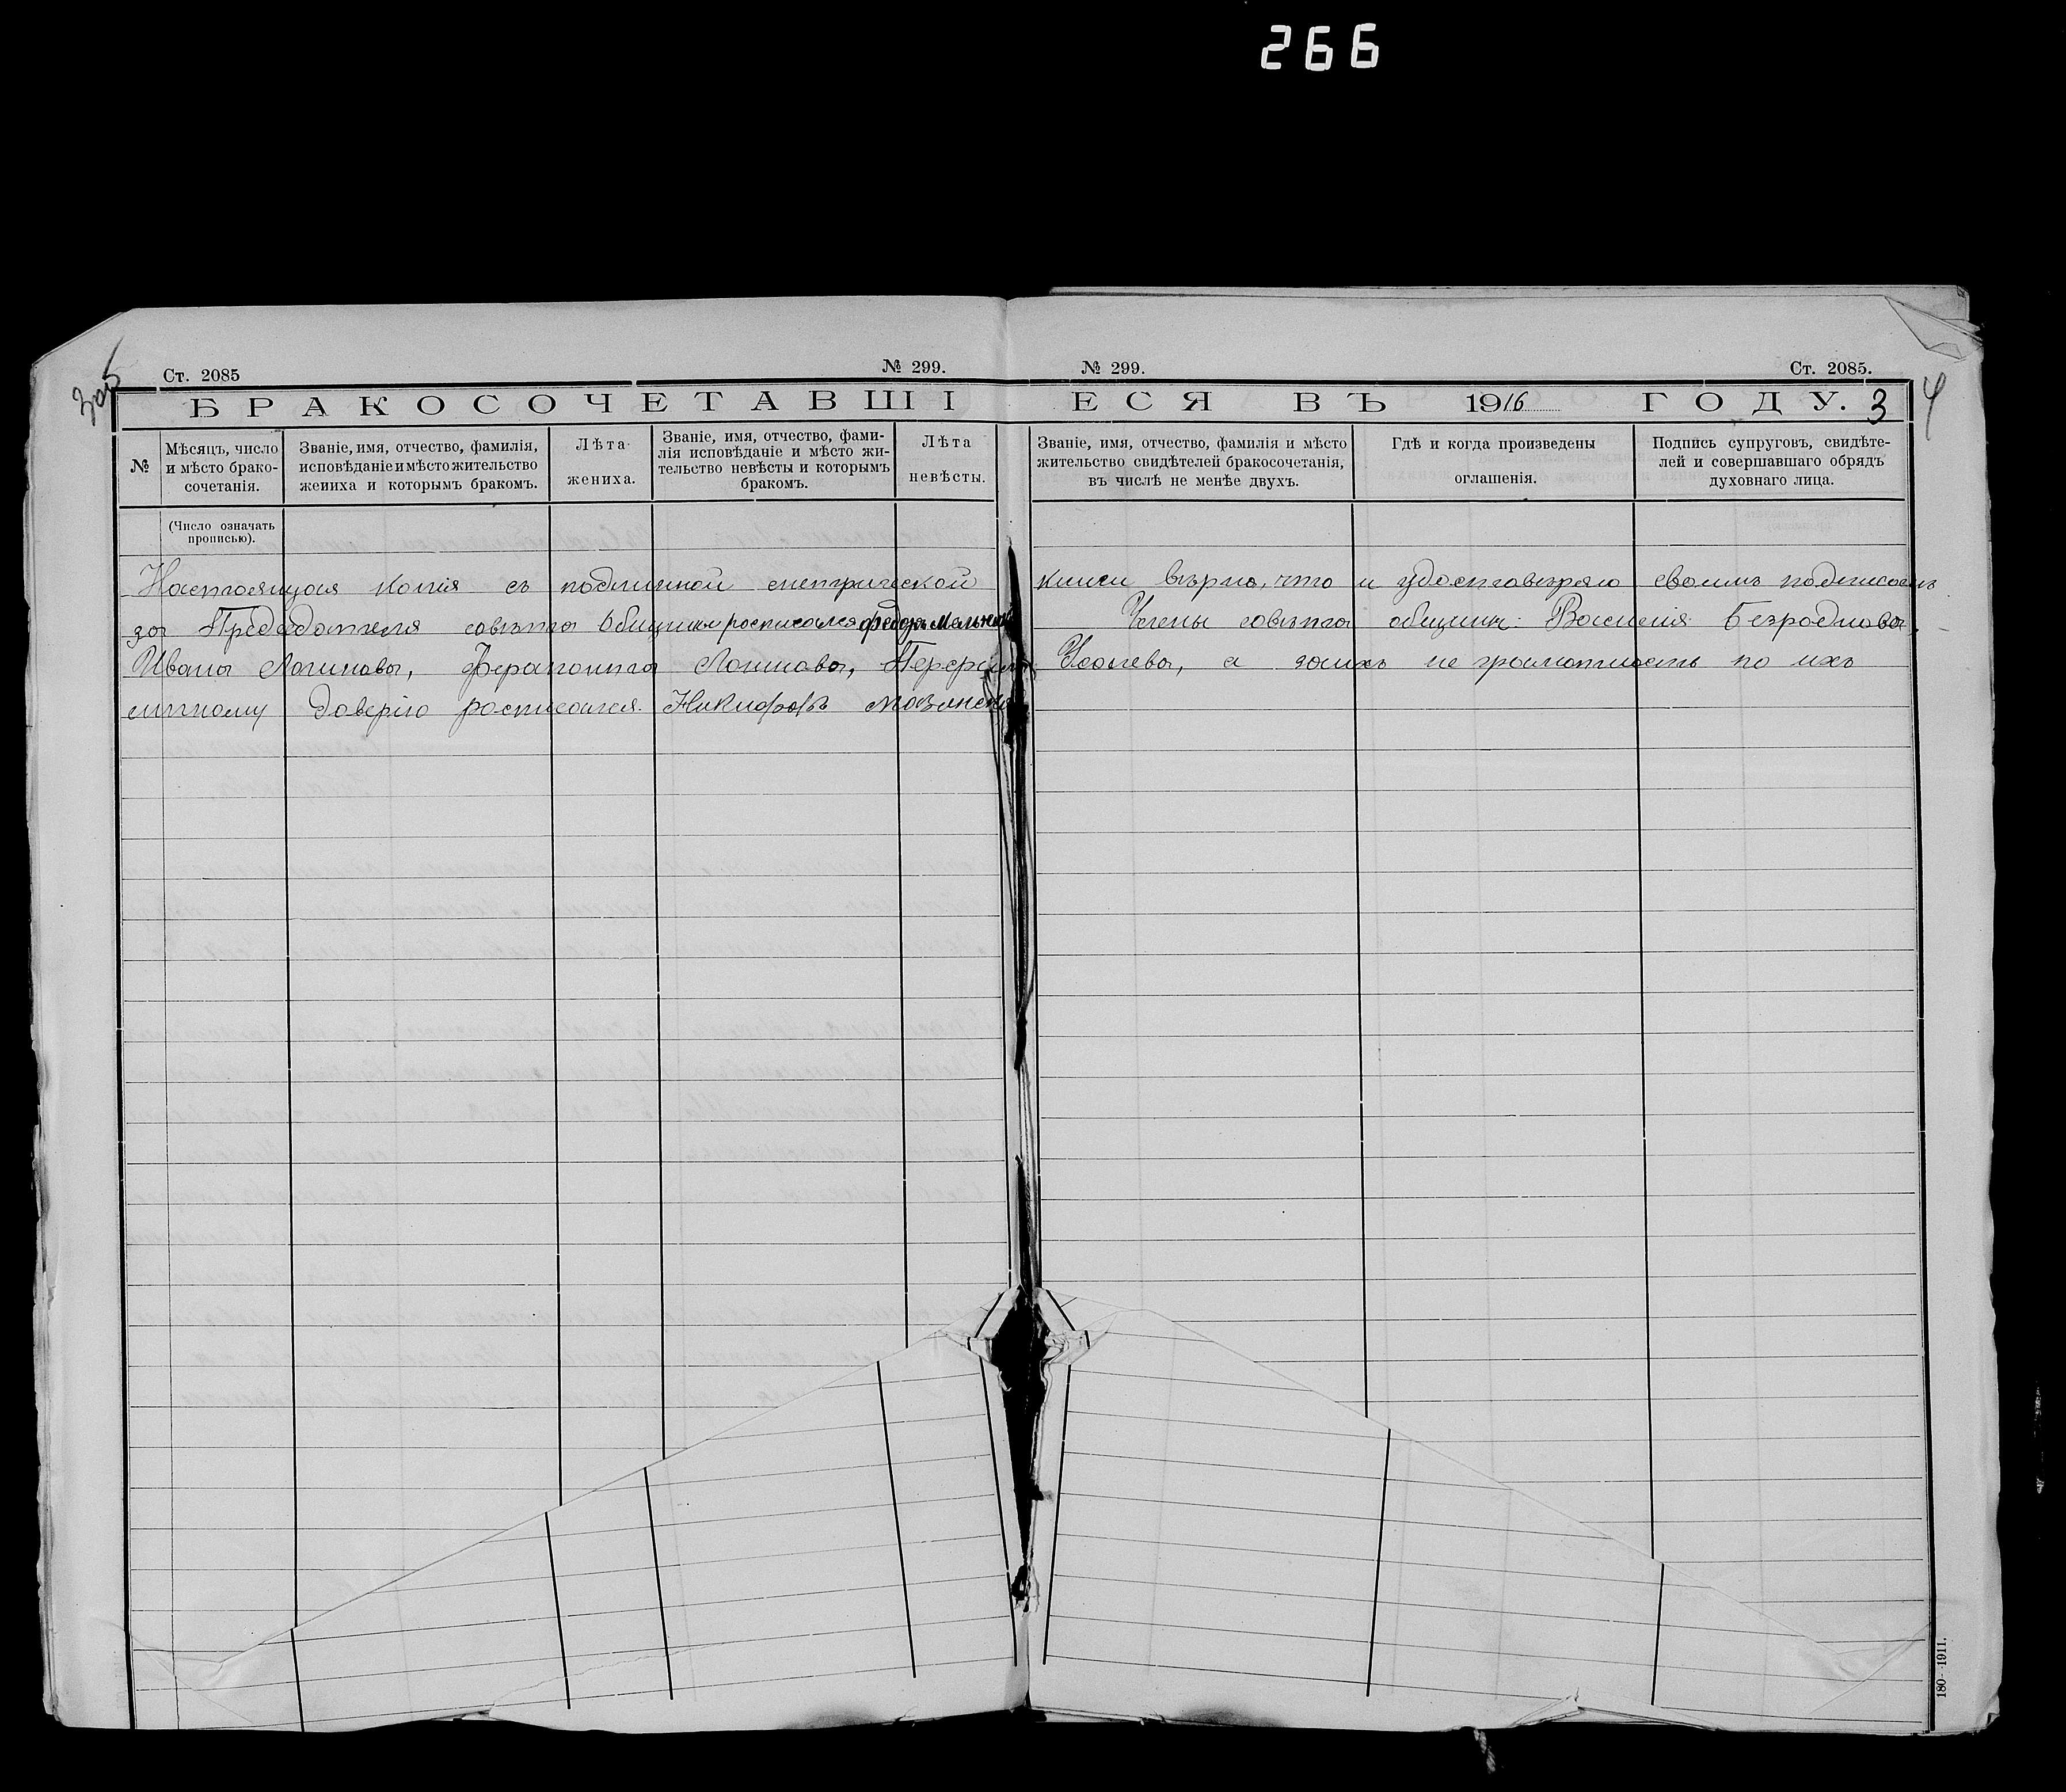 266
Ст. 2085 № 299. № 299. Ст. 2085.
БРАКОСОЧЕТАВШІЕСЯ ВЪ 1916 ГОДУ. 3 4
№
Мѣсяцъ, число
и мѣсто брако-
сочетанія.
Званіе, имя, отчество, фамилія,
исповѣданіе и мѣсто жительство
жениха и которымъ бракомъ.
Лѣта
жениха.
Званіе, имя, отчество, фами-
лія исповѣданіе и мѣсто жи-
тельство невѣсты и которымъ
бракомъ.
Лѣта
невѣсты.
Званіе, имя, отчество, фамилія и мѣсто
жительство свидѣтелей бракосочетанія,
въ числѣ не менѣе двухъ.
Гдѣ и когда произведены
оглашенія.
Подпись супруговъ, свидѣте-
лей и совершавшаго обрядъ
духовнаго лица.
(Число означать
прописью).
Настоящая копія съ подлинной метрической книги вѣрна, что и удостовѣряю своимъ подписомъ
за Председателя совѣта общины росписался Федоръ Члены совѣта общины: Василія Безроднова,
Ивана Логинова, Ферапонта Логинова, а за ихъ не грамотность по ихъ
личному доверію росписался. Никифоръ
180--1911.